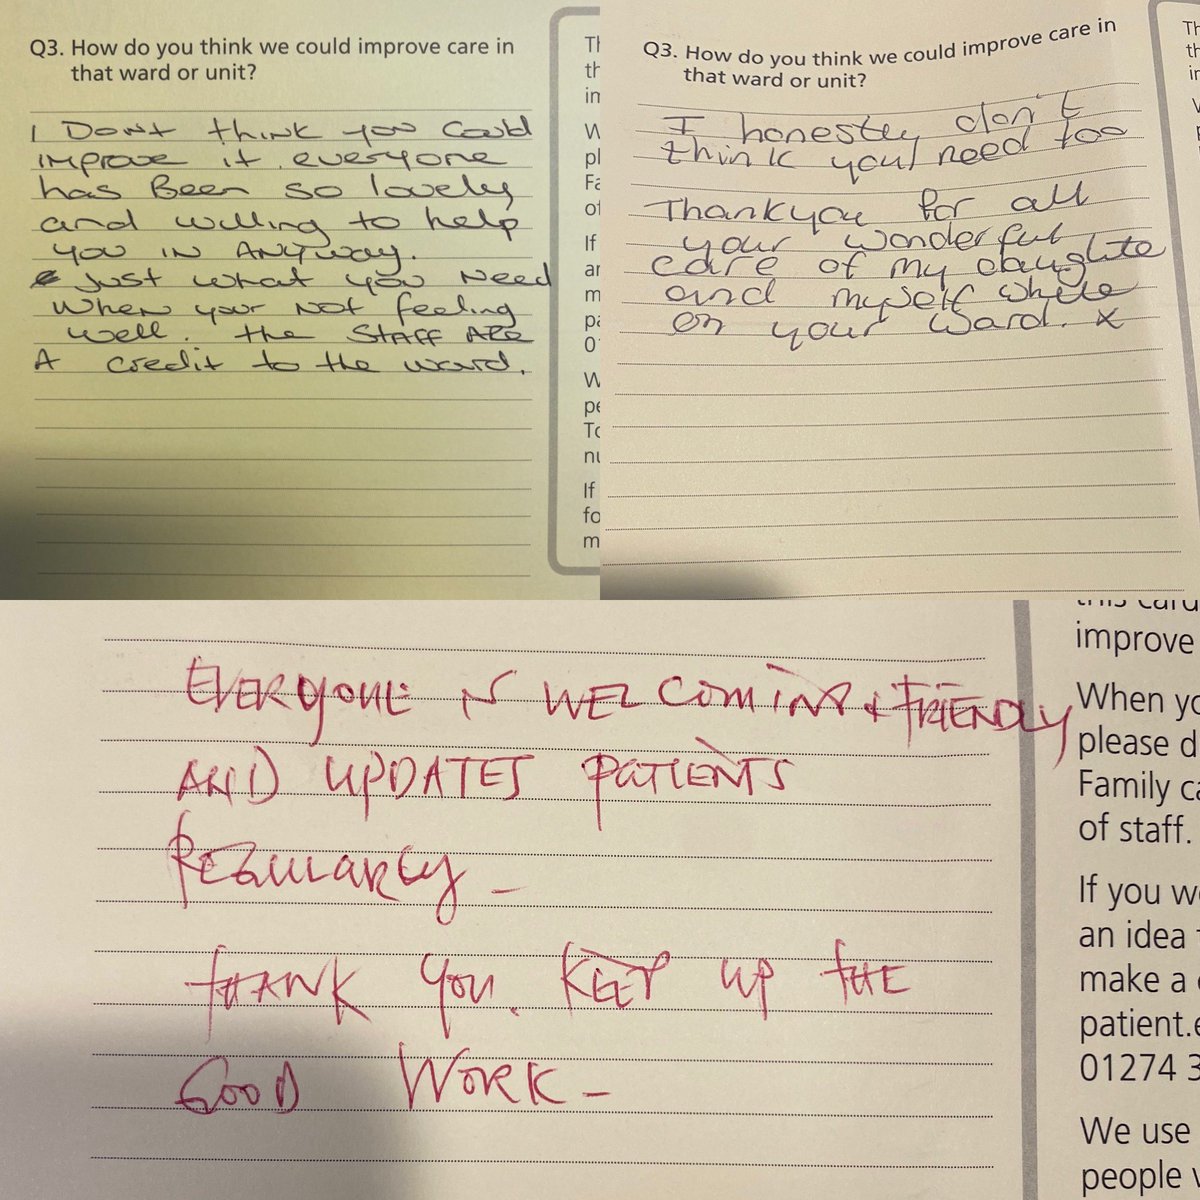 Q3. How do you think we could improve care in
that ward or unit?
I DONT think you Could
IMPROVE it. everyone
has Been so lovely
and willing to help
you IN ANYway.
Just what you Need
When your Not feeling
well. the STAFF ARE
A credit to the ward.
Th
th
in
W
pl
Fa
of
If
an
m
pa
0
W
pe
To
nu
If
fo
m
Q3. How do you think we could improve care in
that ward or unit?
I honestly don't
think you need too
Thankyou for all
your wonderful
care of my daughte
and myself while
on your ward. x
Th
th
in
EVERYONE IS WELCOMING & FRIENDLY
AND UPDATES PATIENTS
REGULARLY -
THANK YOU. KEEP UP THE
GOOD WORK -
this card
improve
When yo
please d
Family ca
of staff.
If you w
an idea
make a
patient.e
01274 3
We use
people